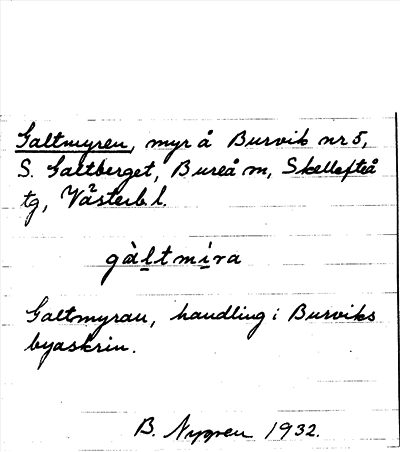 Galtmyren, myr å Burvik nr 5,
S. Galtberget, Bureå m, Skellefteå
tg, Västerb l.
gàltmíra
Galtmyran, handling i Burviks
byaskrin.
B. Nygren 1932.